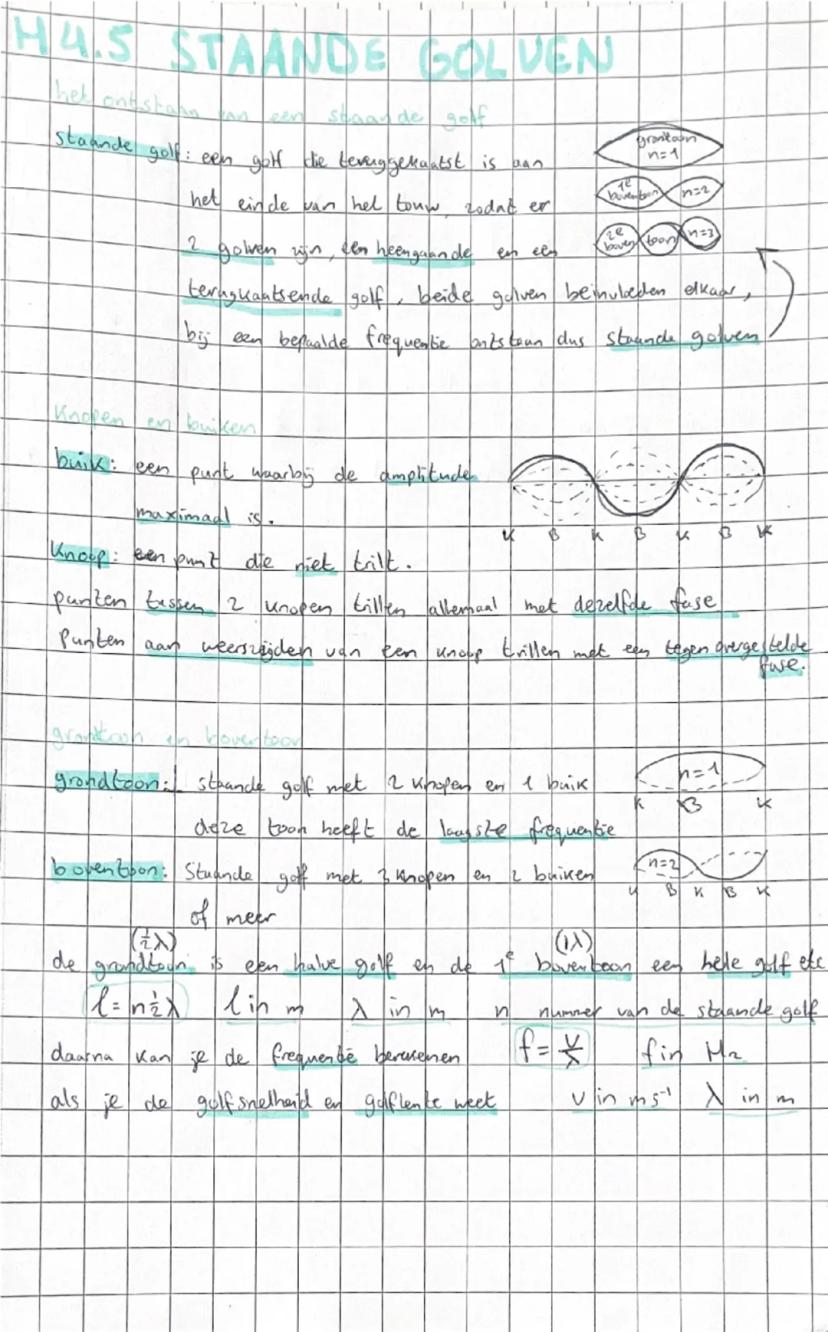 H4.5 STAANDE GOLVEN
het ontstaan van een staande golf
staande golf: een golf die teruggekaatst is aan
het einde van het touw, zodat er
2 golven zijn, een heengaande en een
terugkaatsende golf, beide golven beinvloeden elkaar,
bij een bepaalde frequentie ontstaan dus staande golven
grondtoon
n=1
1e boventoon n=2
2e boven toon n=3
Knopen en buiken
buik: een punt waarbij de amplitude
maximaal is.
K B K B K B K
Knoop: een punt die niet trilt.
punten tussen 2 knopen trillen allemaal met dezelfde fase
Punten aan weerszijden van een knoop trillen met een tegenovergestelde
fase.
grondtoon en boventoon
grondtoon: staande golf met 2 knopen en 1 buik
deze toon heeft de laagste frequentie
n=1
K B K
boventoon: Staande golf met 3 knopen en 2 buiken
of meer
n=2
K B K B K
(½λ) (1λ)
de grondtoon is een halve golf en de 1e boventoon een hele golf etc
l = n½λ l in m λ in m n nummer van de staande golf
daarna kan je de frequentie berekenen f = v/λ f in Hz
als je de golfsnelheid en golflente weet v in ms⁻¹ λ in m